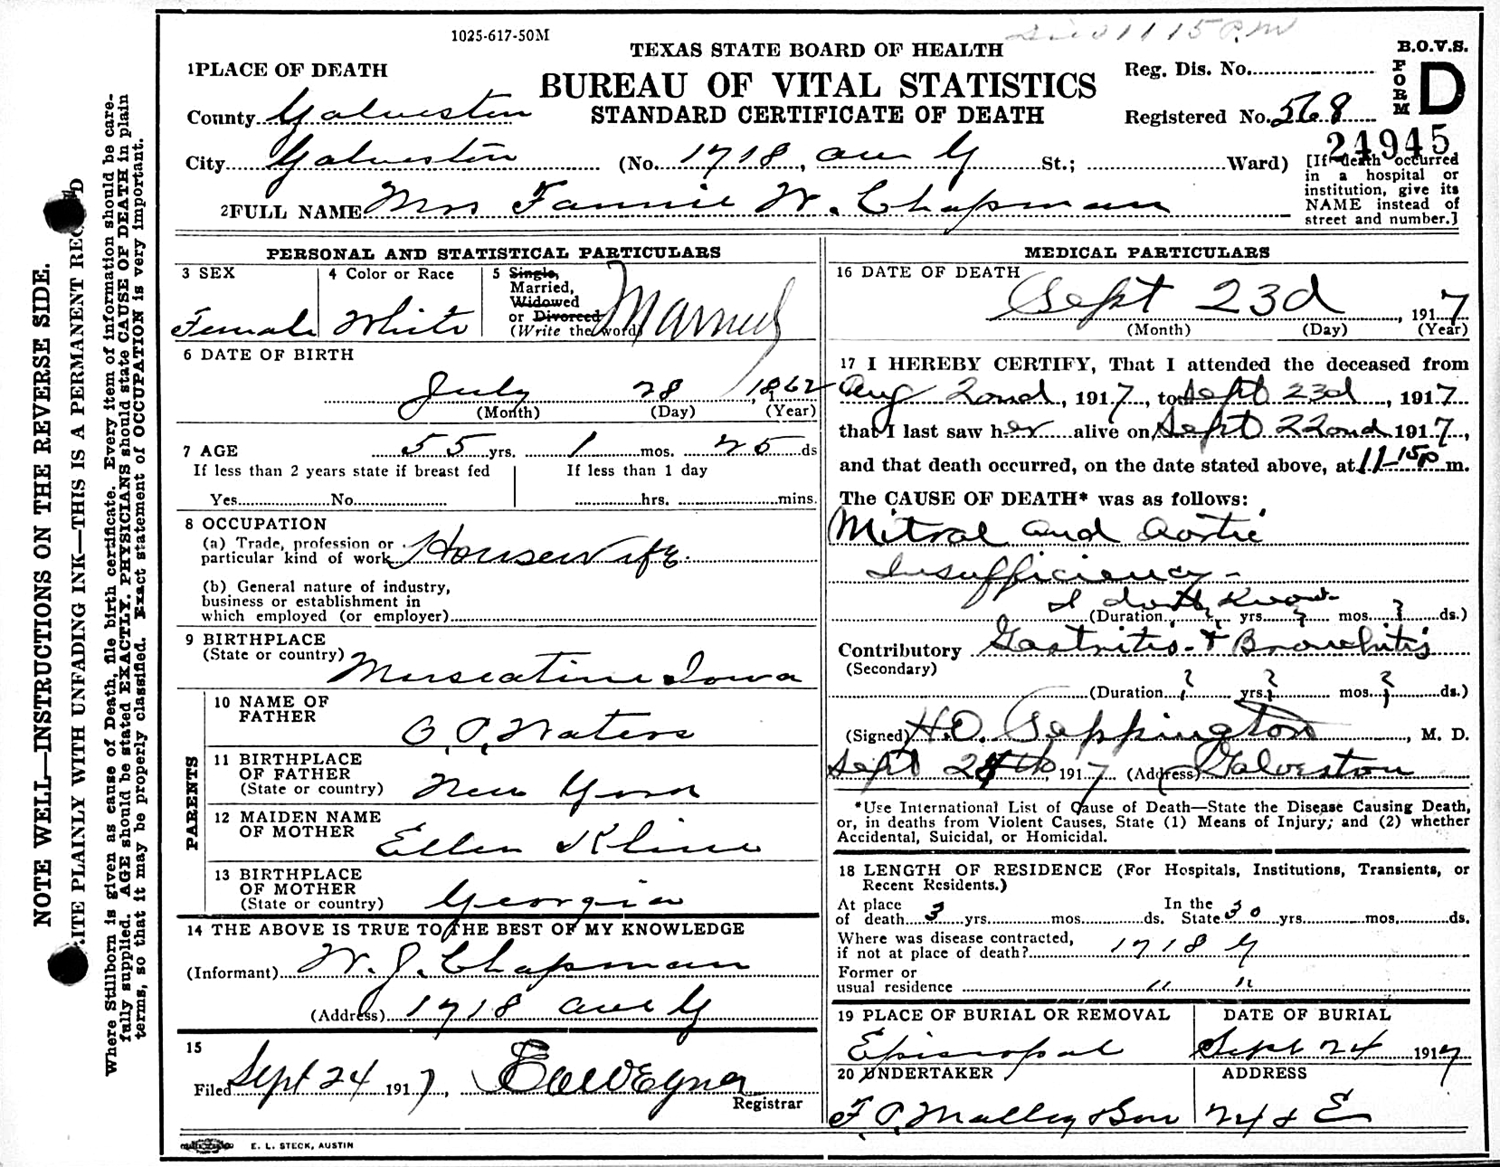 1025-617-50M
Died 11 15 P.M
TEXAS STATE BOARD OF HEALTH
BUREAU OF VITAL STATISTICS
STANDARD CERTIFICATE OF DEATH
B.O.V.S.
FORM D
Reg. Dis. No.
Registered No. 568
24945
1 PLACE OF DEATH
County Galveston
City Galveston (No. 1718, ave Y St.; Ward)
[If death occurred in a hospital or institution, give its NAME instead of street and number.]
2 FULL NAME Mrs Fannie W. Chapman
PERSONAL AND STATISTICAL PARTICULARS
3 SEX
Female
4 Color or Race
White
5 Single, Married, Widowed or Divorced (Write the word)
Married
6 DATE OF BIRTH
July 28, 1862
(Month) (Day) (Year)
7 AGE 55 yrs. 1 mos. 25 ds
If less than 2 years state if breast fed
Yes No
If less than 1 day
hrs. mins.
8 OCCUPATION
(a) Trade, profession or particular kind of work Housewife
(b) General nature of industry, business or establishment in which employed (or employer)
9 BIRTHPLACE
(State or country) Muscatine Iowa
PARENTS
10 NAME OF FATHER
O. P. Waters
11 BIRTHPLACE OF FATHER
(State or country) New York
12 MAIDEN NAME OF MOTHER
Ellen Kline
13 BIRTHPLACE OF MOTHER
(State or country) Georgia
14 THE ABOVE IS TRUE TO THE BEST OF MY KNOWLEDGE
(Informant) W. J. Chapman
(Address) 1718 ave Y
15
Filed Sept 24 1917,
Registrar
MEDICAL PARTICULARS
16 DATE OF DEATH
Sept 23d, 1917
(Month) (Day) (Year)
17 I HEREBY CERTIFY, That I attended the deceased from
Aug 22nd, 1917, to Sept 23d, 1917
that I last saw her alive on Sept 22nd 1917,
and that death occurred, on the date stated above, at 11-15p m.
The CAUSE OF DEATH* was as follows:
Mitral and Aortic
Insufficiency-
I don't know
(Duration ? yrs. ? mos. ? ds.)
Contributory Gastritis + Bronchitis
(Secondary)
(Duration ? yrs. ? mos. ? ds.)
(Signed) H.O. Sappington, M. D.
Sept 24th, 1917 (Address) Galveston
*Use International List of Cause of Death—State the Disease Causing Death,
or, in deaths from Violent Causes, State (1) Means of Injury; and (2) whether
Accidental, Suicidal, or Homicidal.
18 LENGTH OF RESIDENCE (For Hospitals, Institutions, Transients, or Recent Residents.)
At place of death 3 yrs. mos. ds. In the State 30 yrs. mos. ds.
Where was disease contracted, if not at place of death? 1718 Y
Former or usual residence " "
19 PLACE OF BURIAL OR REMOVAL
Episcopal
DATE OF BURIAL
Sept 24 1917
20 UNDERTAKER
F. P. Malloy & Son
ADDRESS
24 & E
E. L. STECK, AUSTIN
NOTE WELL—INSTRUCTIONS ON THE REVERSE SIDE.
ITE PLAINLY WITH UNFADING INK—THIS IS A PERMANENT RECORD
Where Stillborn is given as cause of Death, file birth certificate. Every item of information should be care-
fully supplied. AGE should be stated EXACTLY. PHYSICIANS should state CAUSE OF DEATH in plain
terms, so that it may be properly classified. Exact statement of OCCUPATION is very important.